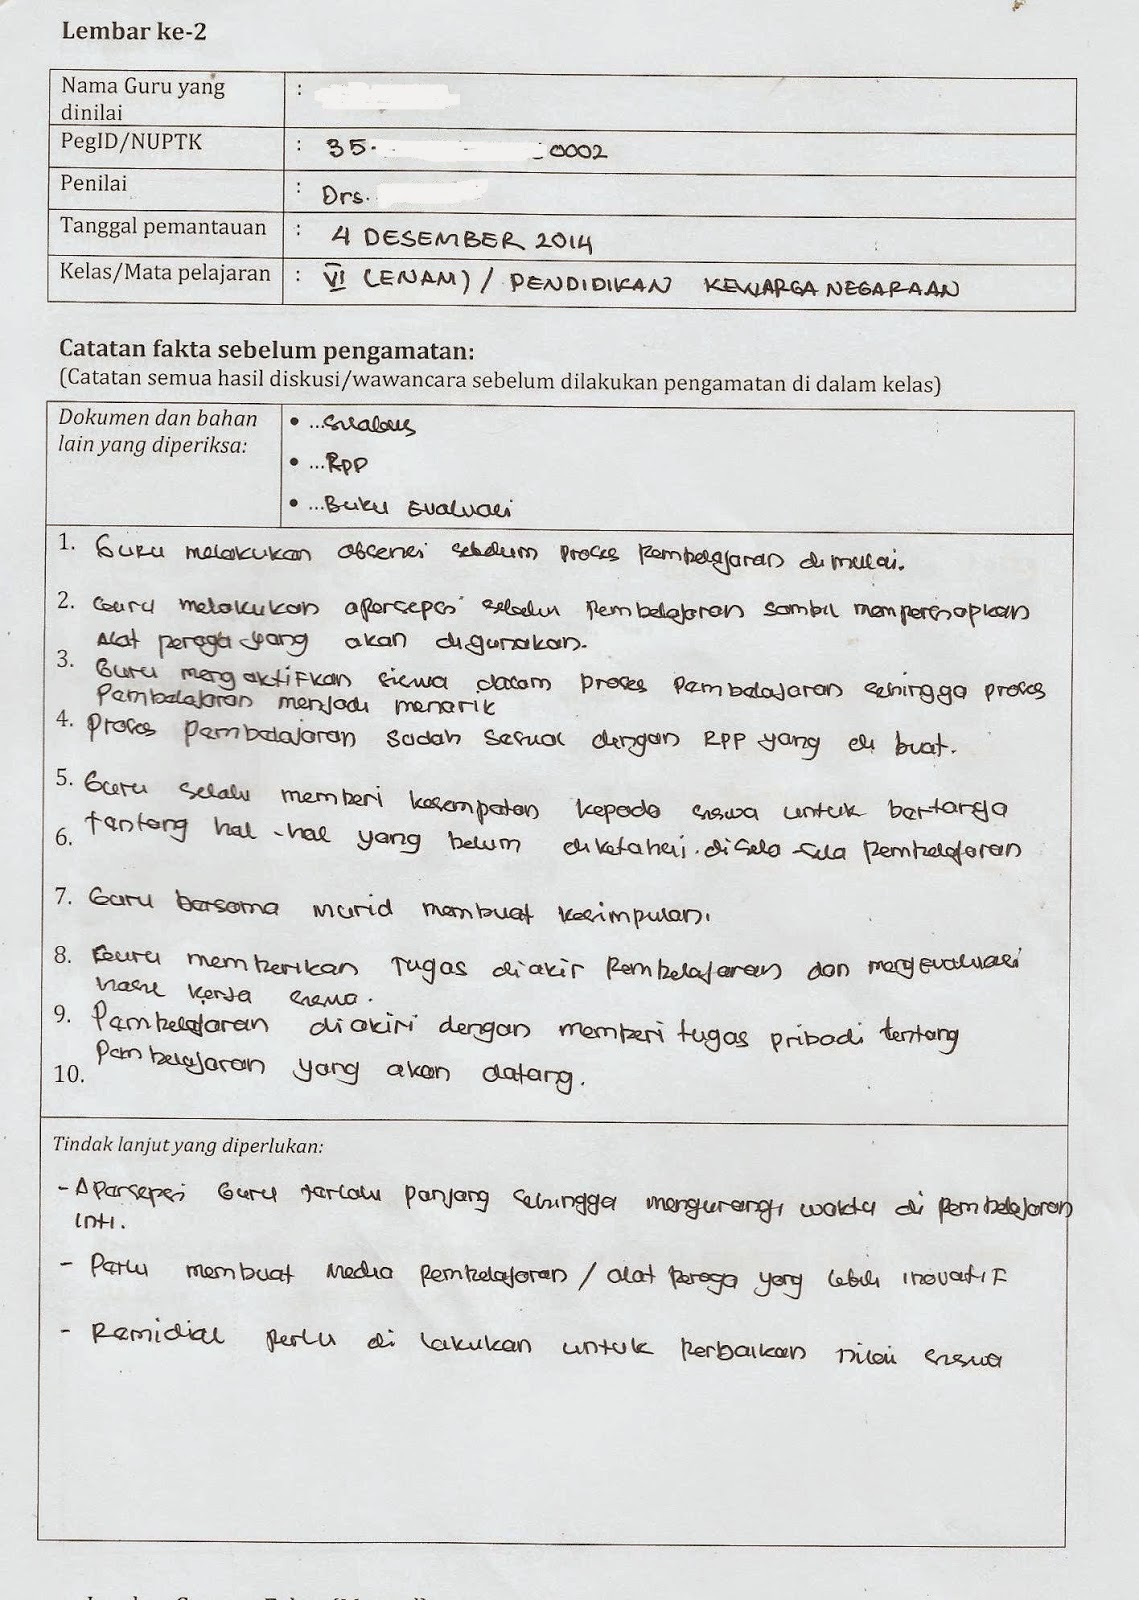 Lembar ke-2
Nama Guru yang :
dinilai
PegID/NUPTK : 35. 0002
Penilai : Drs.
Tanggal pemantauan : 4 DESEMBER 2014
Kelas/Mata pelajaran : VI (ENAM) / PENDIDIKAN KEWARGANEGARAAN
Catatan fakta sebelum pengamatan:
(Catatan semua hasil diskusi/wawancara sebelum dilakukan pengamatan di dalam kelas)
Dokumen dan bahan
lain yang diperiksa:
• ...Silabus
• ...RPP
• ...Buku Evaluasi
1. Guru melakukan absensi sebelum proses pembelajaran di mulai.
2. Guru melakukan apersepsi sebelum pembelajaran sambil mempersiapkan
Alat peraga yang akan digunakan.
3. Guru mengaktifkan siswa dalam proses pembelajaran sehingga proses
pembelajaran menjadi menarik
4. Proses pembelajaran sudah sesuai dengan RPP yang di buat.
5. Guru selalu memberi kesempatan kepada siswa untuk bertanya
6. tentang hal-hal yang belum diketahui. disela-sela pembelajaran
7. Guru bersama murid membuat kesimpulan.
8. Guru memberikan tugas diakir pembelajaran dan mengevaluasi
hasil kerja siswa.
9. Pembelajaran diakiri dengan memberi tugas pribadi tentang
pembelajaran yang akan datang.
10.
Tindak lanjut yang diperlukan:
- Apersepsi Guru terlalu panjang sehingga mengurangi waktu di pembelajaran
inti.
- Perlu membuat Media pembelajaran / alat peraga yang lebih inovatif
- Remidial perlu di lakukan untuk perbaikan nilai siswa